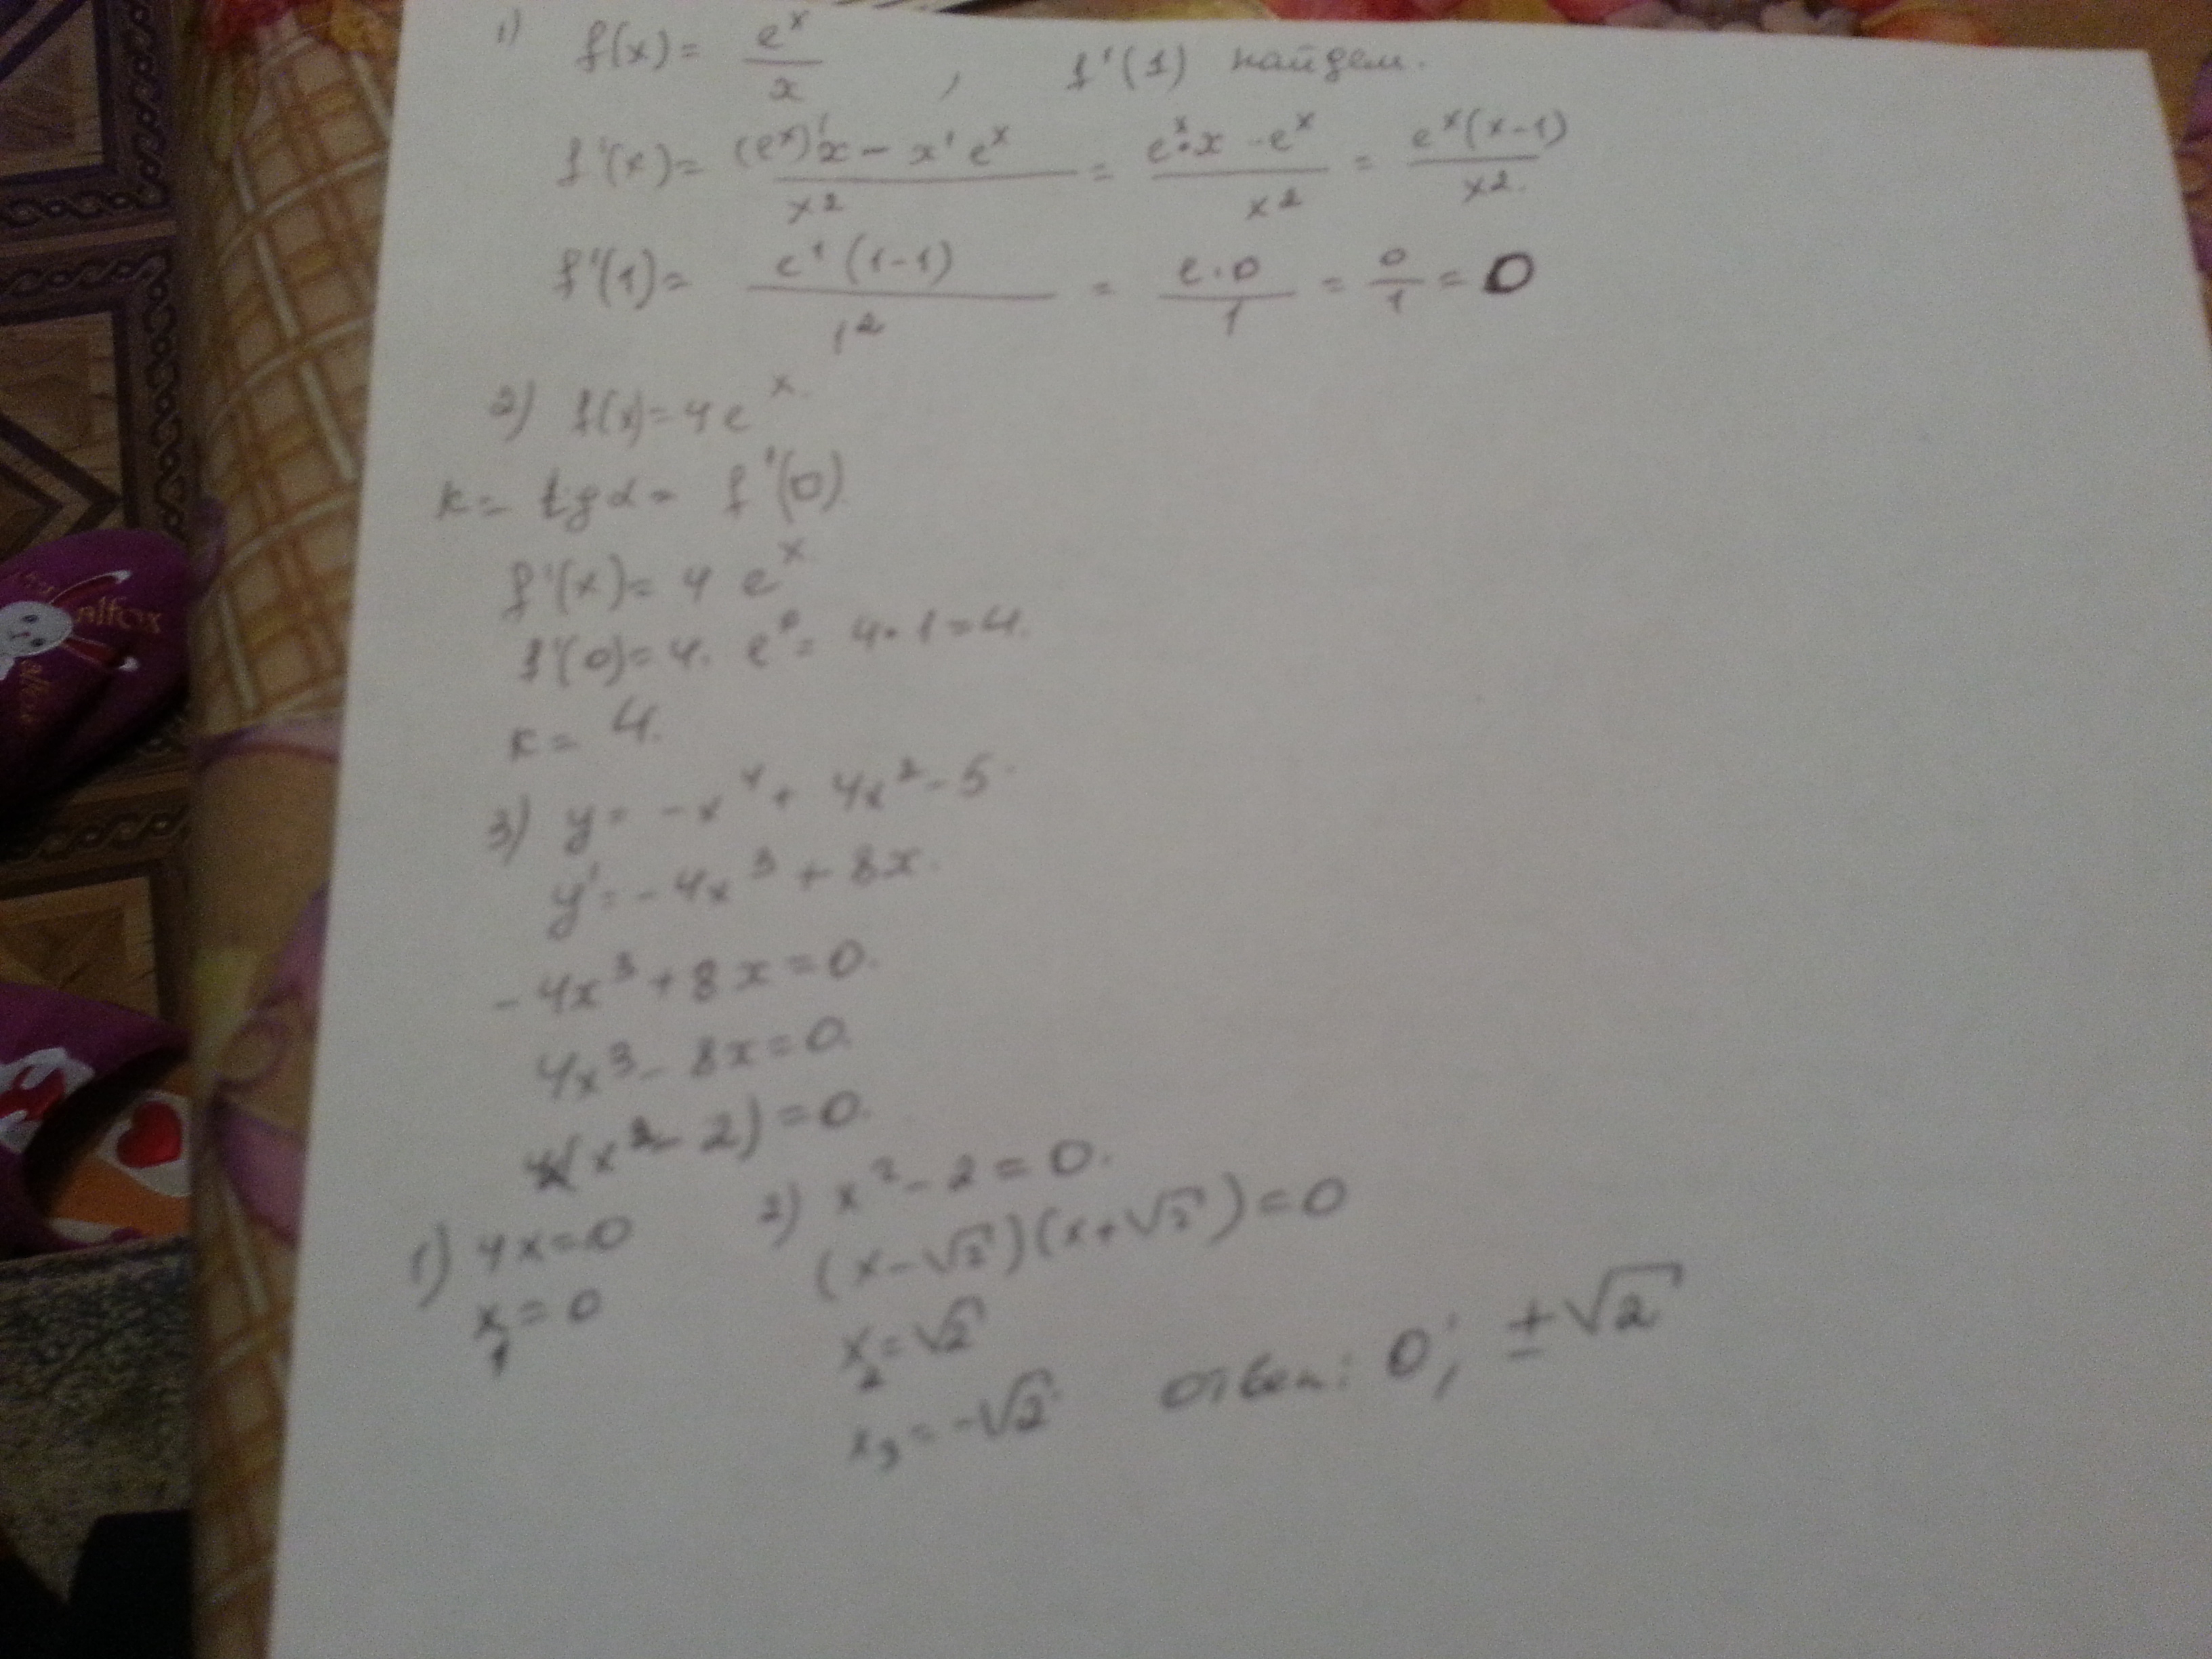 1) f(x) = e^x / x , f'(1) найдем.
f'(x) = ((e^x)'x - x'e^x) / x² = (e^x·x - e^x) / x² = e^x(x-1) / x².
f'(1) = e¹(1-1) / 1² = e·0 / 1 = 0/1 = 0
2) f(x) = 4e^x.
k = tgα = f'(0)
f'(x) = 4 e^x
f'(0) = 4. e⁰ = 4·1 = 4.
k = 4.
3) y = -x⁴ + 4x² - 5.
y' = -4x³ + 8x.
-4x³ + 8x = 0.
4x³ - 8x = 0.
4x(x² - 2) = 0.
1) 4x = 0
x₁ = 0
2) x² - 2 = 0.
(x - √2)(x + √2) = 0
x₂ = √2
x₃ = -√2
ответ: 0; ±√2
alfox